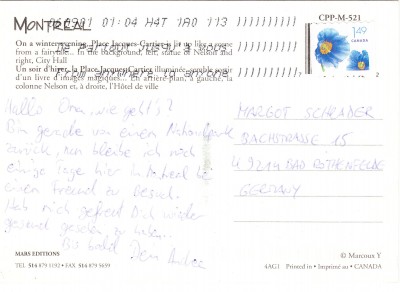 MONTREAL
050901 01:04 H4T 1A0 113
CPP-M-521
149
CANADA
On a winter evening, Place Jacques-Cartier is lit up like a scene
from a fairytale... In the background, left, statue of Nelson and
right, City Hall
De partout jusqu'à vous
Un soir d'hiver, la Place Jacques-Cartier illuminée, semble sortir
d'un livre d'images magiques... En arrière-plan, à gauche, la
colonne Nelson et, à droite, l'Hôtel de ville
From anywhere to anyone
Hallo Oma, wie geht's?
Bin gerade von einem Nationalpark
zurück, nun bleibe ich noch
einige Tage hier in Montreal bei
einem Freund zu Besuch.
Hab mich gefreut Dich wieder
gesund gesehen zu haben.
Bis bald Dein
MARGOT SCHRADER
BACHSTRASSE 15
49214 BAD ROTHENFELDE
GERMANY
MARS EDITIONS
TEL 514 879 1192 • FAX 514 879 5659
© Marcoux Y
4AG1 Printed in • Imprimé au • CANADA